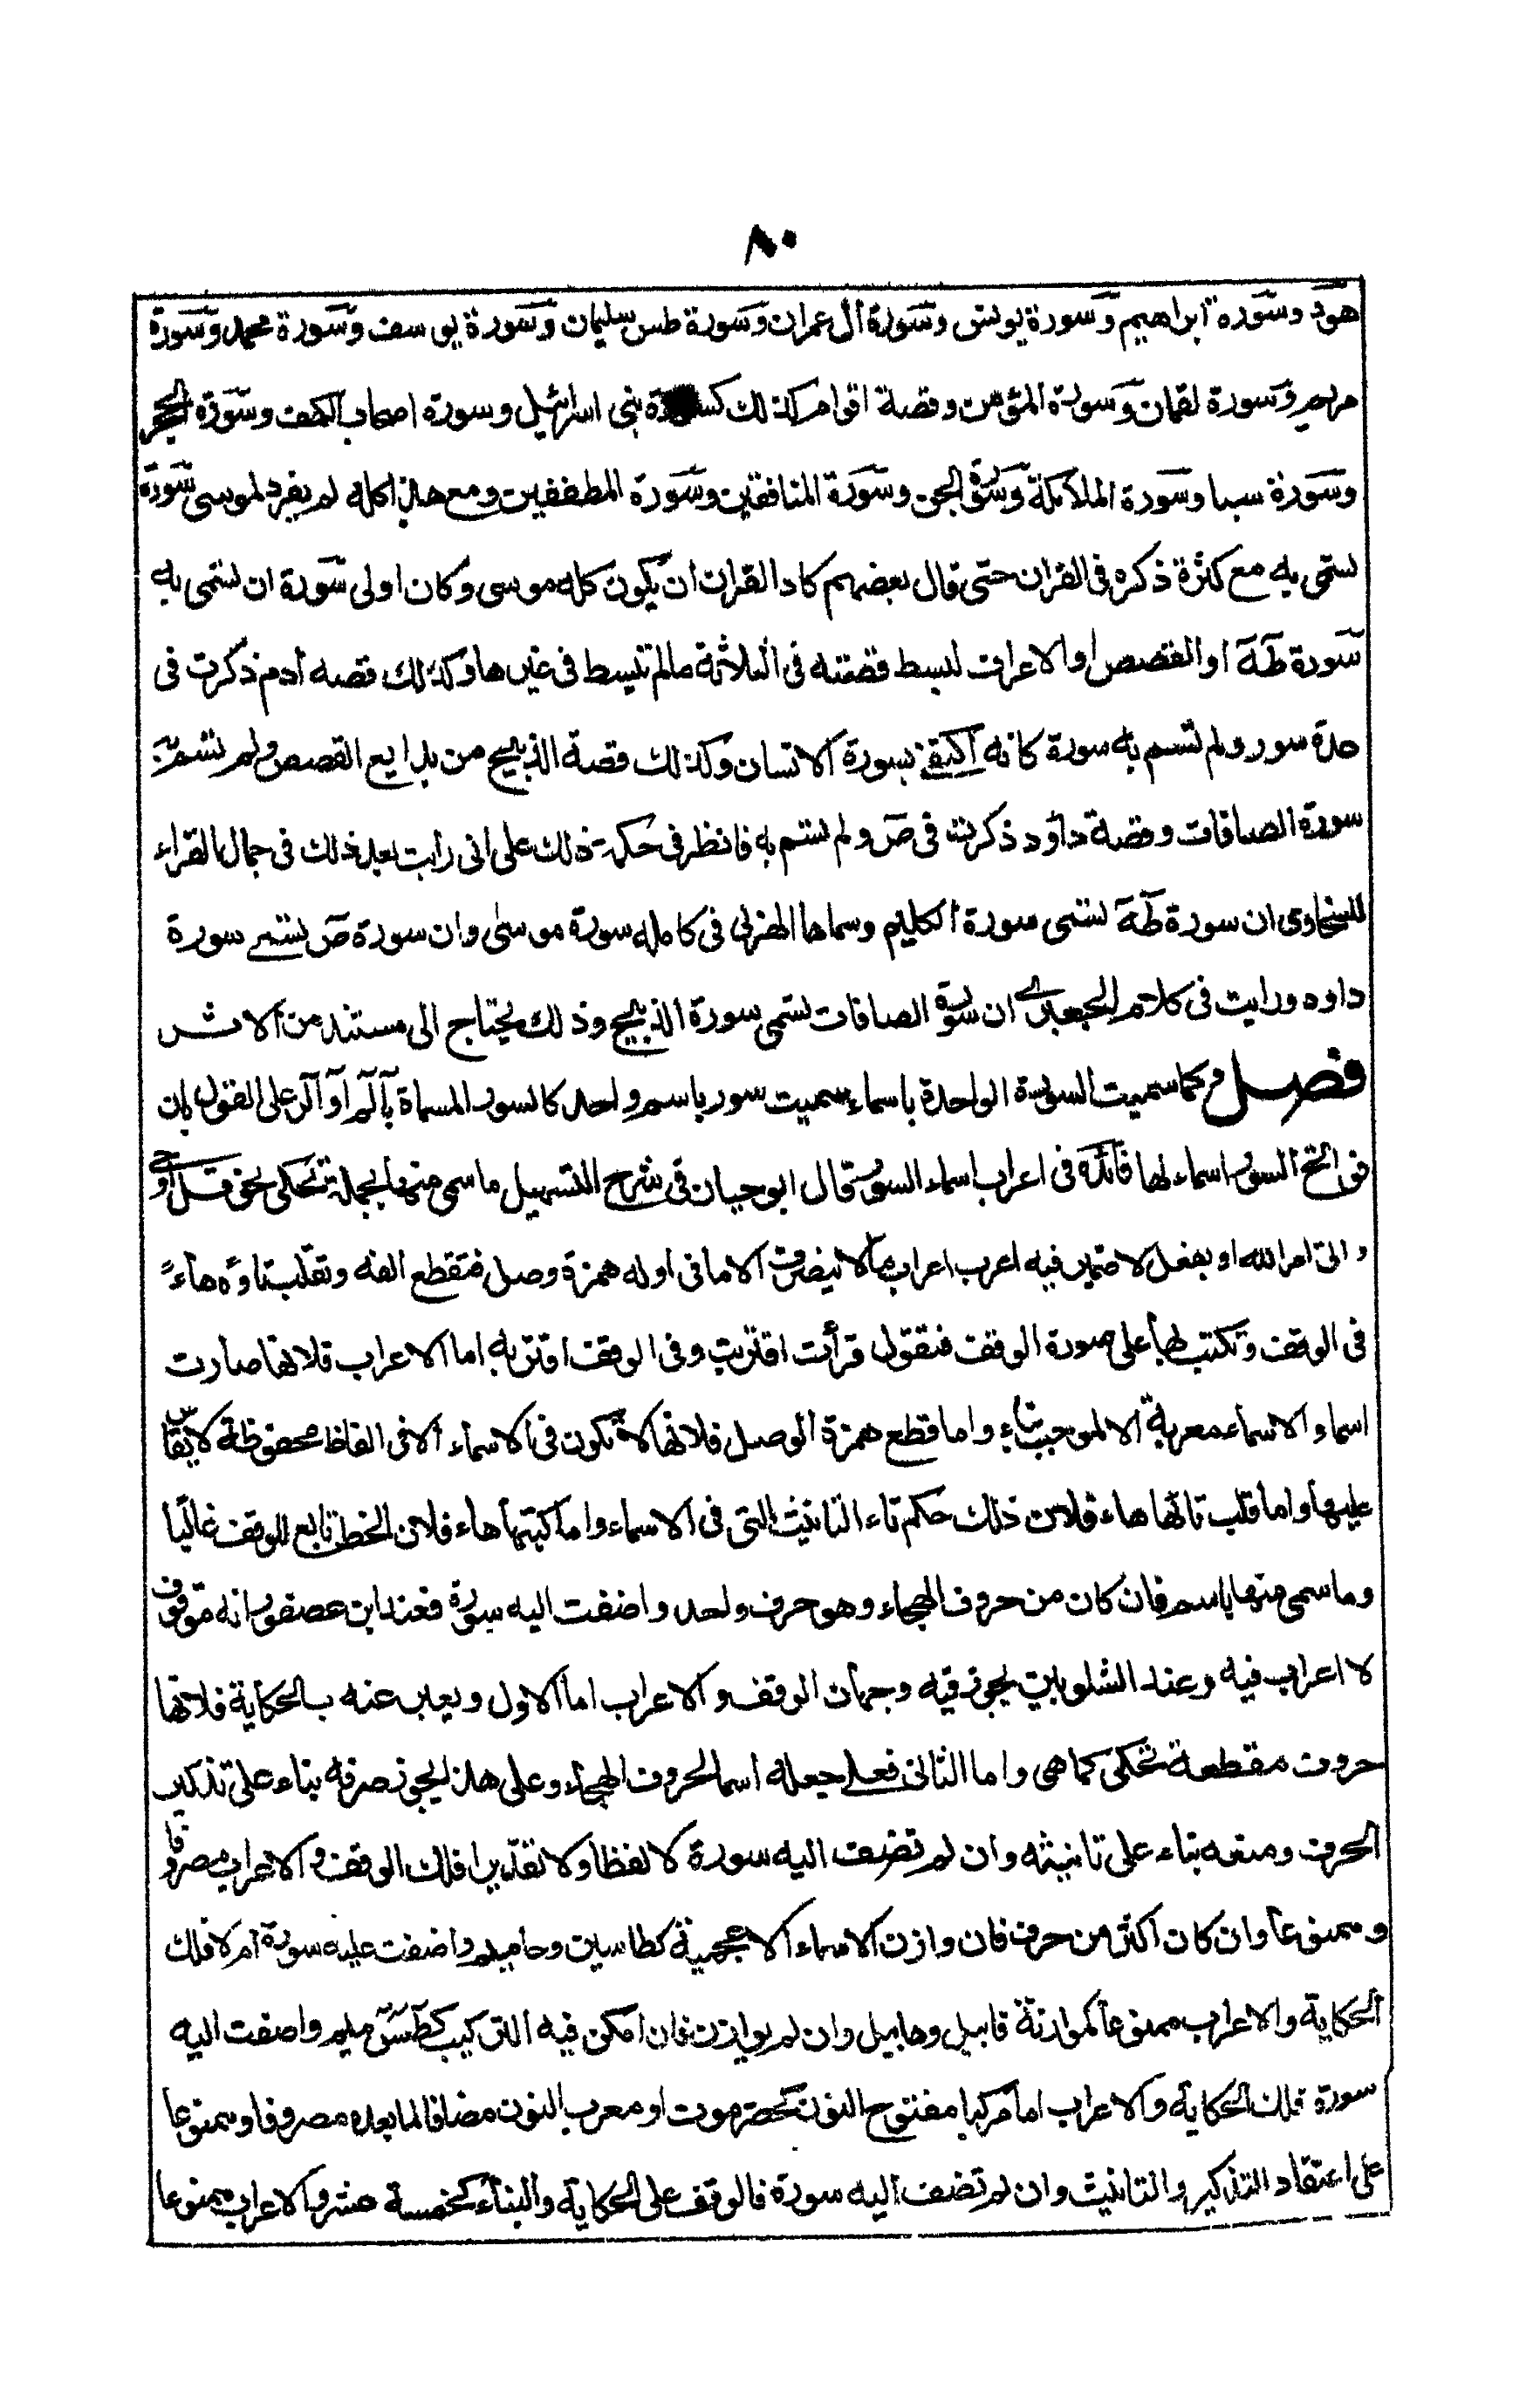 ٨٠
هود وسورة ابراهيم وسورة يونس وسورة آل عمران وسورة طس سليمان وسورة يوسف وسورة محمد وسورة
مريم وسورة لقمان وسورة المؤمن وقصة اقوام كذلك كسورة بنى اسرائيل وسورة اصحاب الكهف وسورة الحجر
وسورة سبا وسورة الملائكة وسورة الجن وسورة المنافقين وسورة المطففين ومع هذا كله لم يفرد لموسى سورة
تسمى به مع كثرة ذكره فى القران حتى قال بعضهم كاد القران ان يكون كله موسى وكان اولى سورة ان تسمى به
سورة طه او القصص او الاعراف لبسط قصته فى الثلاثة مالم تبسط فى غيرها وكذلك قصه آدم ذكرت فى
عدة سور ولم تسم به سورة كانه اكتفى بسورة الانسان وكذلك قصة الذبيح من بدايع القصص ولم تسم به
سورة الصافات وقصة داود ذكرت فى ص ولم تسم به فانظر فى حكمة ذلك على انى رايت بعد ذلك فى جمال القراء
للسخاوى ان سورة طه تسمى سورة الكليم وسماها الهذلى فى كامله سورة موسى وان سورة ص تسمى سورة
داود ورايت فى كلام الجعبرى ان سورة الصافات تسمى سورة الذبيح وذلك يحتاج الى مستند من الاثر
فصل وكما سميت السورة الواحدة باسماء سميت سور باسم واحد كالسور المسماة بآلم او آلر على القول بان
فواتح السور اسماء لها فائدة فى اعراب اسماء السور قال ابو حيان فى شرح التسهيل ما سمى منها بجملة تحكى نحو قل اوحى
واتى امر الله او بفعل لا ضمير فيه اعرب اعراب ما لا ينصرف الا ما فى اوله همزة وصل فتقطع الفه وتقلب تاؤه هاءً
فى الوقف وتكتب هاء على صورة الوقف فتقول قرأت اقتربت وفى الوقف اقتربه اما الاعراب فلانها صارت
اسماء والاسماء معربة الا لموجب بناء واما قطع همزة الوصل فلانها لا تكون فى الاسماء الا فى الفاظ محفوظة لا يقاس
عليها واما قلب تائها هاء فلان ذلك حكم تاء التانيث التى فى الاسماء واما كتبها هاء فلان الخط تابع للوقف غالبا
وما سمى منها باسم فان كان من حروف الهجاء وهو حرف واحد واضفت اليه سورة فعند ابن عصفور انه موقوف
لا اعراب فيه وعند الشلوبين يجوز فيه وجهان الوقف والاعراب اما الاول ويعبر عنه بالحكاية فلانها
حروف مقطعة تحكى كما هى واما الثانى فعلى جعله اسما لحروف الهجاء وعلى هذا يجوز صرفه بناء على تذكير
الحرف ومنعه بناء على تانيثه وان لم تضف اليه سورة لا لفظا ولا تقديرا فلك الوقف والاعراب مصروفا
وممنوعا وان كان اكثر من حرف فان وازن الاسماء الاعجمية كطاسين وحاميم واضفت عليه سورة ام لا فلك
الحكاية والاعراب ممنوعا كموازنة قابيل وهابيل وان لم يوازن فان امكن فيه التركيب كطسن ميم واضفت اليه
سورة فلك الحكاية والاعراب اما مركبا مفتوح النون كحضرموت او معرب النون مضافا لما بعده مصروفا وممنوعا
على اعتقاد التذكير والتانيث وان لم تضف اليه سورة فالوقف على الحكاية والبناء كخمسة عشر والاعراب ممنوعا